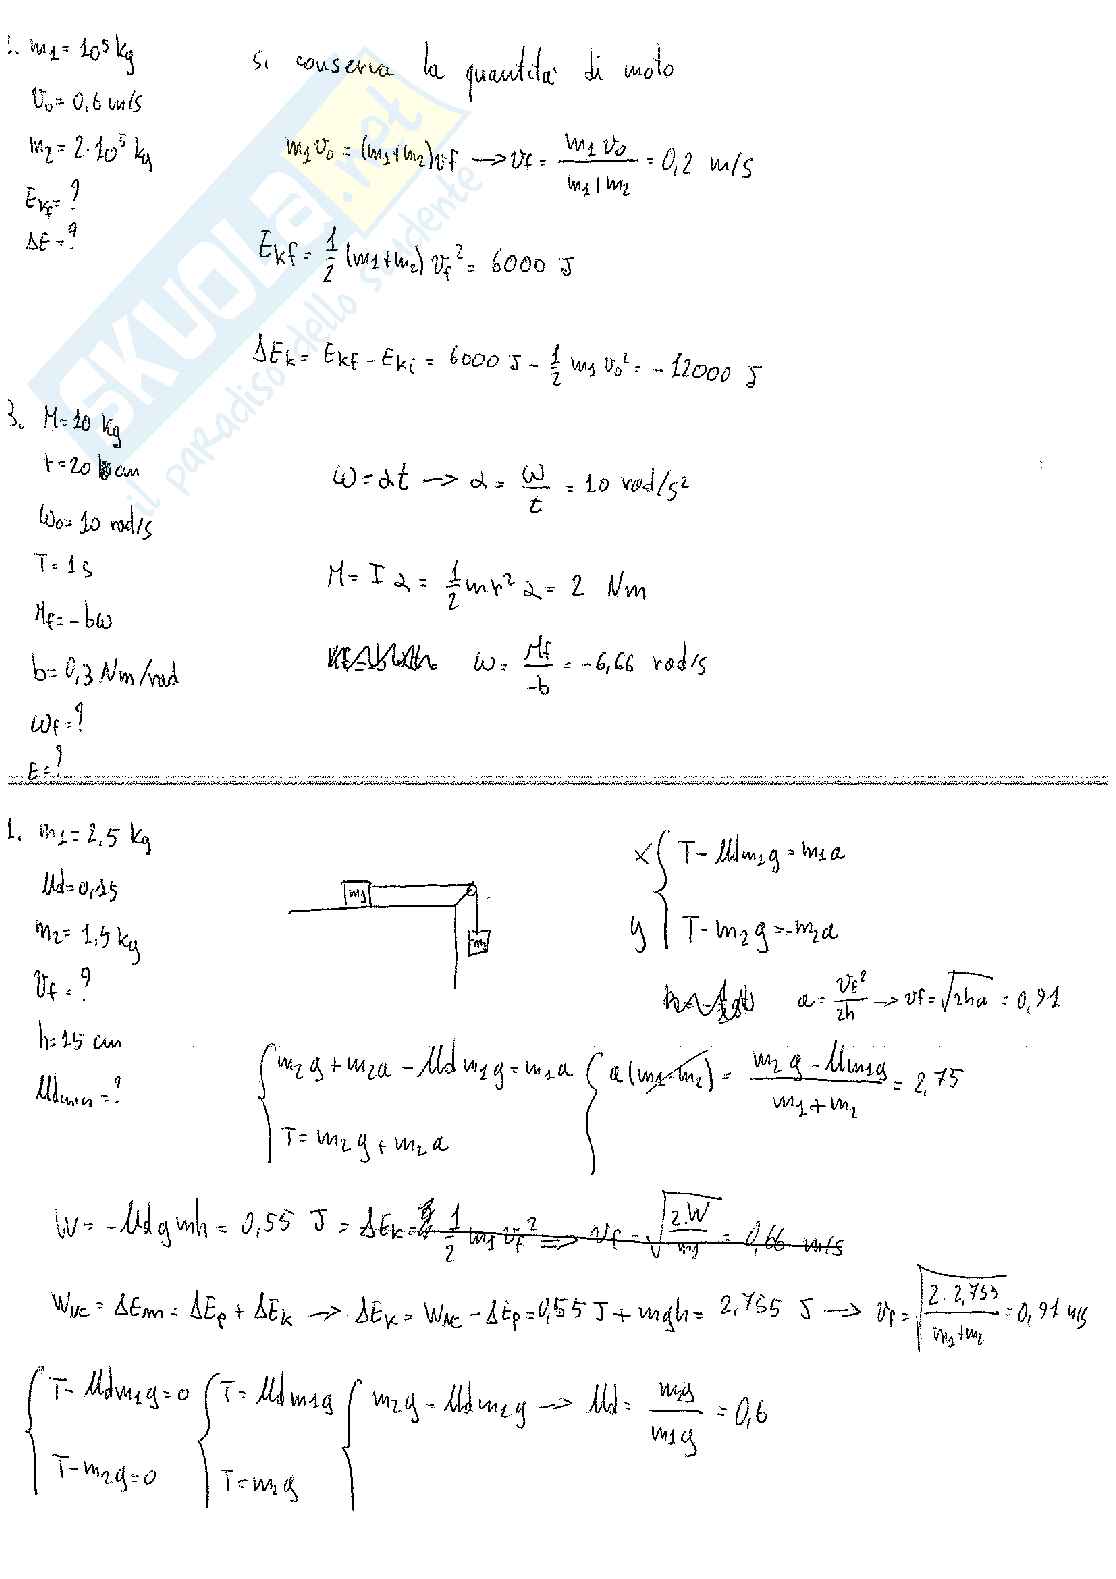 1. m1 = 10⁵ kg
v₀ = 0,6 m/s
m2 = 2·10⁵ kg
Ekf = ?
ΔE = ?
Si conserva la quantità di moto
m1 v₀ = (m1+m2) vf → vf = m1 v₀ / m1+m2 = 0,2 m/s
Ekf = 1/2 (m1+m2) vf² = 6000 J
ΔEk = Ekf - Eki = 6000 J - 1/2 m1 v₀² = -12000 J
SKUOLA.net
il paradiso dello studente
3. M = 10 kg
r = 20 cm
ω₀ = 10 rad/s
T = 1 s
Mf = -bω
b = 0,3 Nm/rad
ωf = ?
E = ?
ω = αt → α = ω/t = 10 rad/s²
M = I α = 1/2 m r² α = 2 Nm
ω = Mf/-b = -6,66 rad/s
1. m1 = 2,5 kg
μd = 0,15
m2 = 1,5 kg
vf = ?
h = 15 cm
μdmin = ?
m1
m2
x { T - μd m1 g = m1 a
y { T - m2 g = -m2 a
a = vf²/2h → vf = √2ha = 0,91
{ m2 g + m2 a - μd m1 g = m1 a { a (m1 - m2) = m2 g - μ m1 g / m1+m2 = 2,75
T = m2 g + m2 a
W = -μd g m h = 0,55 J = ΔEk = 1/2 m1 vf² ⇒ vf = √2·W/m1 = 0,66 m/s
Wnc = ΔEm = ΔEp + ΔEk → ΔEk = Wnc - ΔEp = 0,55 J + mgh = 2,755 J → vf = √2·2,755/m1+m2 = 0,91 m/s
{ T - μd m1 g = 0 { T = μd m1 g { m2 g - μd m1 g → μd = m2 g / m1 g = 0,6
T - m2 g = 0 T = m2 g